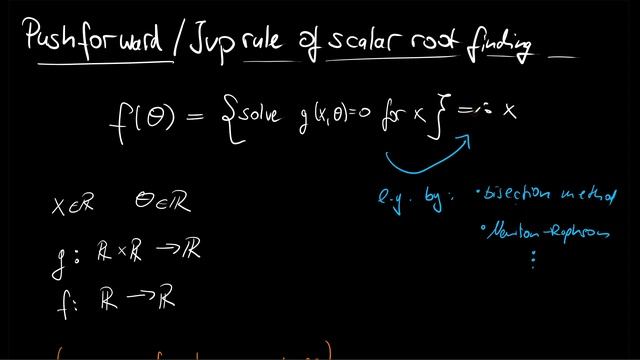 Pushforward / Jvp rule of scalar root finding
f(θ) = {solve g(x,θ)=0 for x} =: x
e.g. by: • bisection method
• Newton-Raphson
⋮
x∈ℝ θ∈ℝ
g: ℝ×ℝ → ℝ
f: ℝ → ℝ